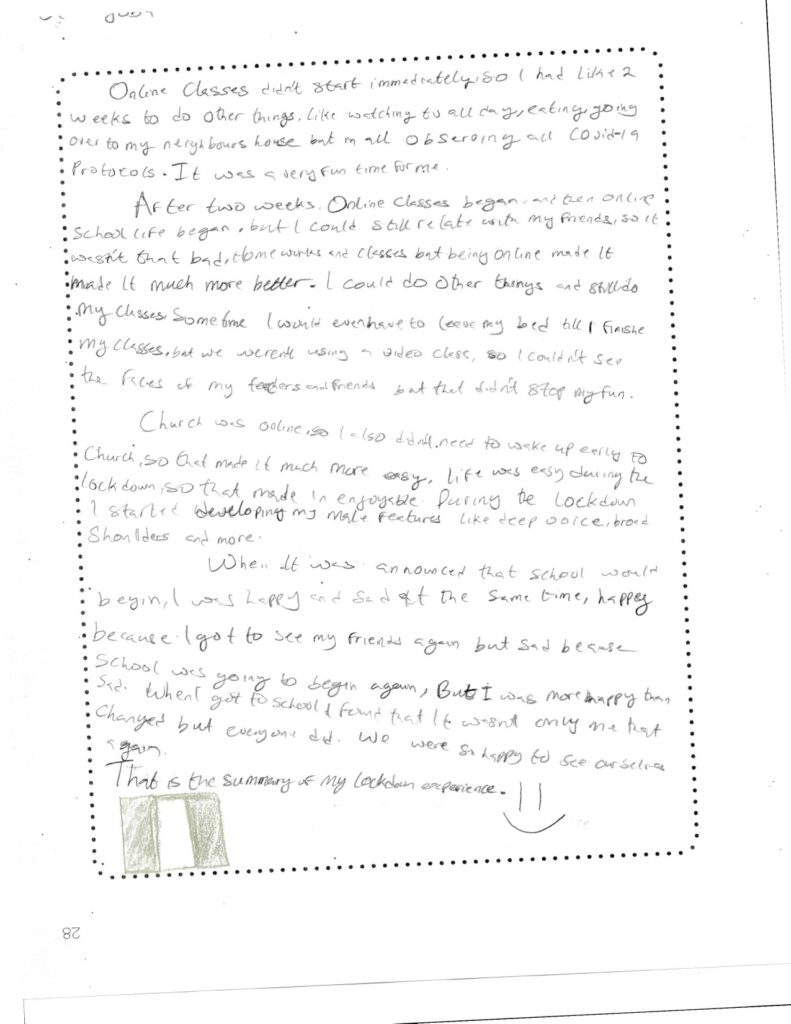 Online Classes didn't start immediately, so I had like 2
weeks to do other things. Like watching tv all day, eating, going
over to my neighbours house but in all observing all Covid-19
Protocols. It was a very fun time for me.
After two weeks, Online Classes began, and then online
School life began, but I could still relate with my friends, so it
wasn't that bad, Home works and classes but being online made it
made it much more better. I could do other things and still do
my classes. Sometime I would even have to leave my bed till I finishe
my classes, but we weren't using a video class, so I couldn't see
the faces of my and friends but that didn't stop my fun.
Church was online, so I also didn't need to wake up early to
Church, so that made it much more easy. Life was easy during the
lockdown, so that made in enjoyable. During the lockdown
I started developing my male features like deep voice, broad
Shoulders and more.
When it was announced that school would
begin, I was happy and sad at the same time, happy
because I got to see my friends again but sad because
School was going to begin again, But I was more happy than
Sad. When I got to school I found that it wasn't only me that
Changed but everyone did. We were so happy to see ourselves
again.
That is the summary of my lockdown experience.
28